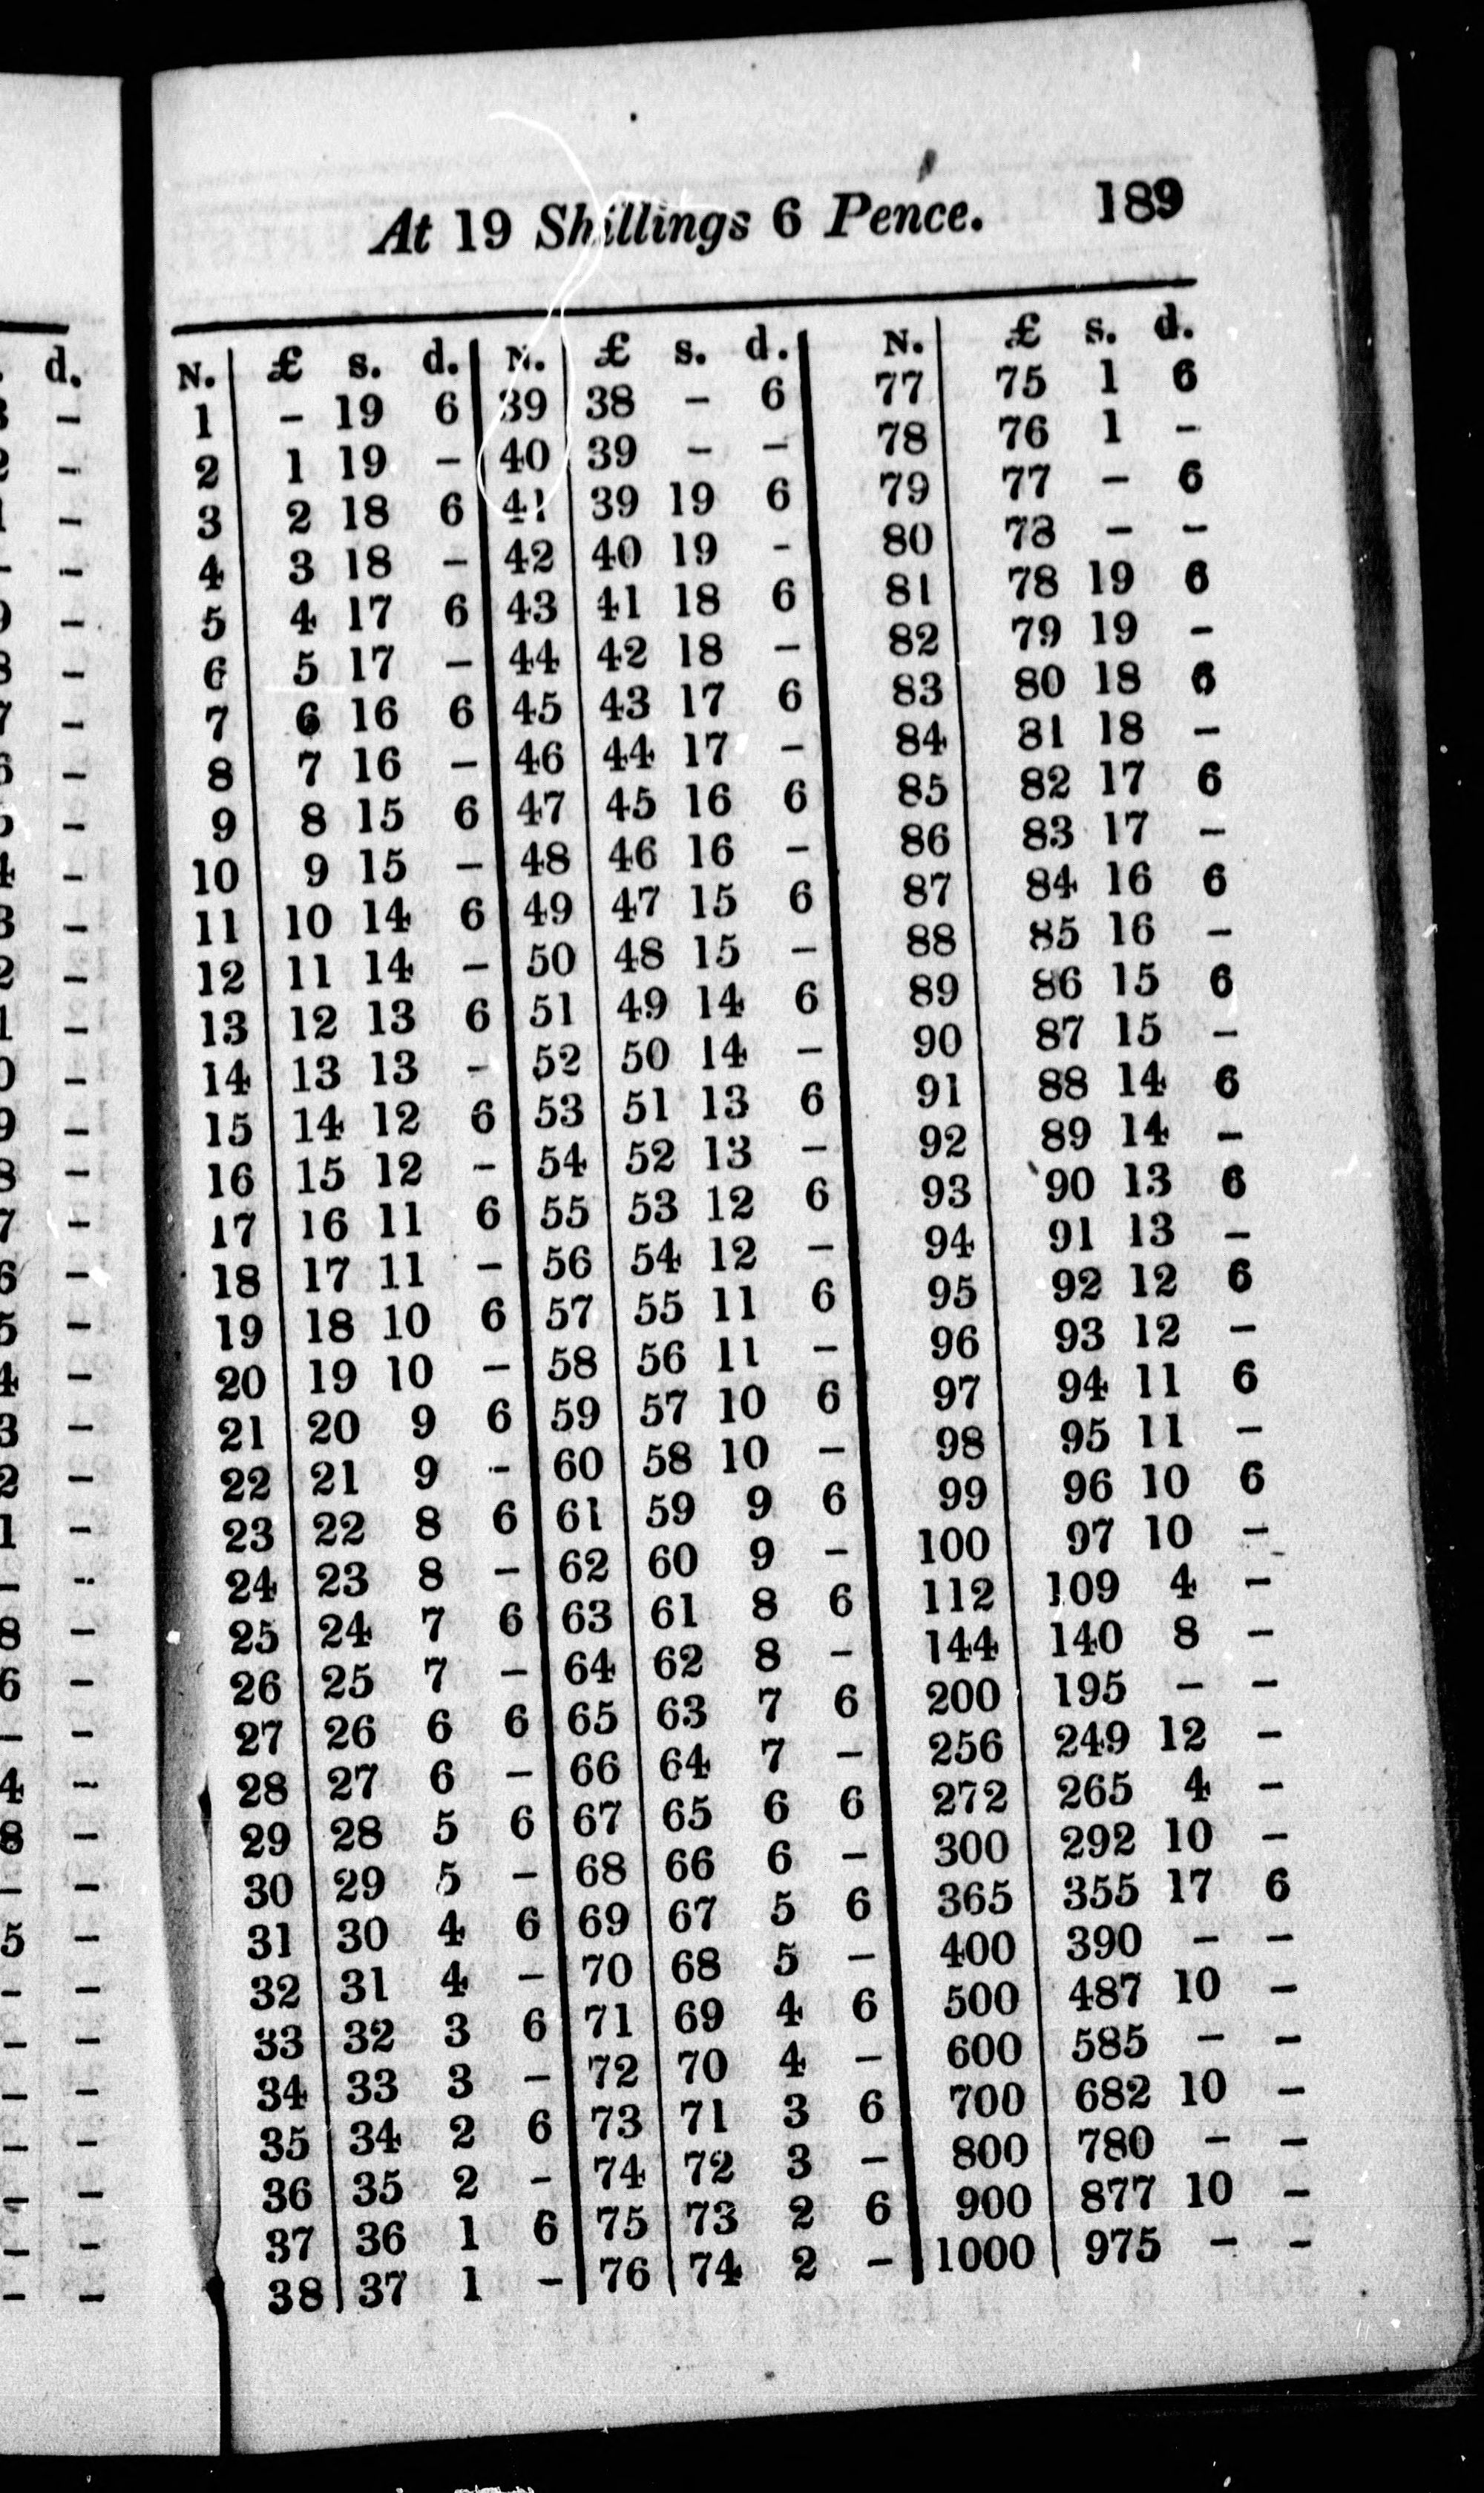 At 19 Shillings 6 Pence. 189
N. £ s. d. N. £ s. d. N. £ s. d.
1 – 19 6 39 38 – 6 77 75 1 6
2 1 19 – 40 39 – – 78 76 1 –
3 2 18 6 41 39 19 6 79 77 – 6
4 3 18 – 42 40 19 – 80 78 – –
5 4 17 6 43 41 18 6 81 78 19 6
6 5 17 – 44 42 18 – 82 79 19 –
7 6 16 6 45 43 17 6 83 80 18 6
8 7 16 – 46 44 17 – 84 81 18 –
9 8 15 6 47 45 16 6 85 82 17 6
10 9 15 – 48 46 16 – 86 83 17 –
11 10 14 6 49 47 15 6 87 84 16 6
12 11 14 – 50 48 15 – 88 85 16 –
13 12 13 6 51 49 14 6 89 86 15 6
14 13 13 – 52 50 14 – 90 87 15 –
15 14 12 6 53 51 13 6 91 88 14 6
16 15 12 – 54 52 13 – 92 89 14 –
17 16 11 6 55 53 12 6 93 90 13 6
18 17 11 – 56 54 12 – 94 91 13 –
19 18 10 6 57 55 11 6 95 92 12 6
20 19 10 – 58 56 11 – 96 93 12 –
21 20 9 6 59 57 10 6 97 94 11 6
22 21 9 – 60 58 10 – 98 95 11 –
23 22 8 6 61 59 9 6 99 96 10 6
24 23 8 – 62 60 9 – 100 97 10 –
25 24 7 6 63 61 8 6 112 109 4 –
26 25 7 – 64 62 8 – 144 140 8 –
27 26 6 6 65 63 7 6 200 195 – –
28 27 6 – 66 64 7 – 256 249 12 –
29 28 5 6 67 65 6 6 272 265 4 –
30 29 5 – 68 66 6 – 300 292 10 –
31 30 4 6 69 67 5 6 365 355 17 6
32 31 4 – 70 68 5 – 400 390 – –
33 32 3 6 71 69 4 6 500 487 10 –
34 33 3 – 72 70 4 – 600 585 – –
35 34 2 6 73 71 3 6 700 682 10 –
36 35 2 – 74 72 3 – 800 780 – –
37 36 1 6 75 73 2 6 900 877 10 –
38 37 1 – 76 74 2 – 1000 975 – –